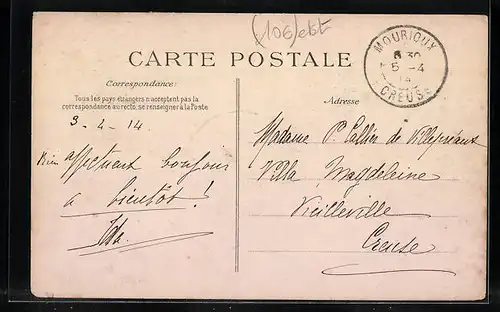 CARTE POSTALE
MOURIOUX
5-4
14
CREUSE
Correspondance:
Tous les pays étrangers n'acceptent pas la
correspondance au recto, se renseigner à la Poste
3-4-14
Bien affectueux bonjour
à bientôt!
Ida
Adresse
Madame P.
Villa Magdeleine
Vieilleville
Creuse